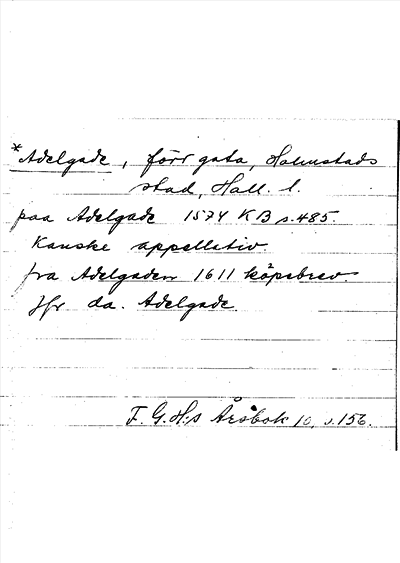 *Adelgade, förr gata, Halmstads
stad, Hall. l.
paa Adelgade 1574 KB s.485.
Kanske appellativ.
fra Adelgaden 1611 köpebrev.
Jfr da. Adelgade.
F.G.H:s Årsbok 10, s.156.